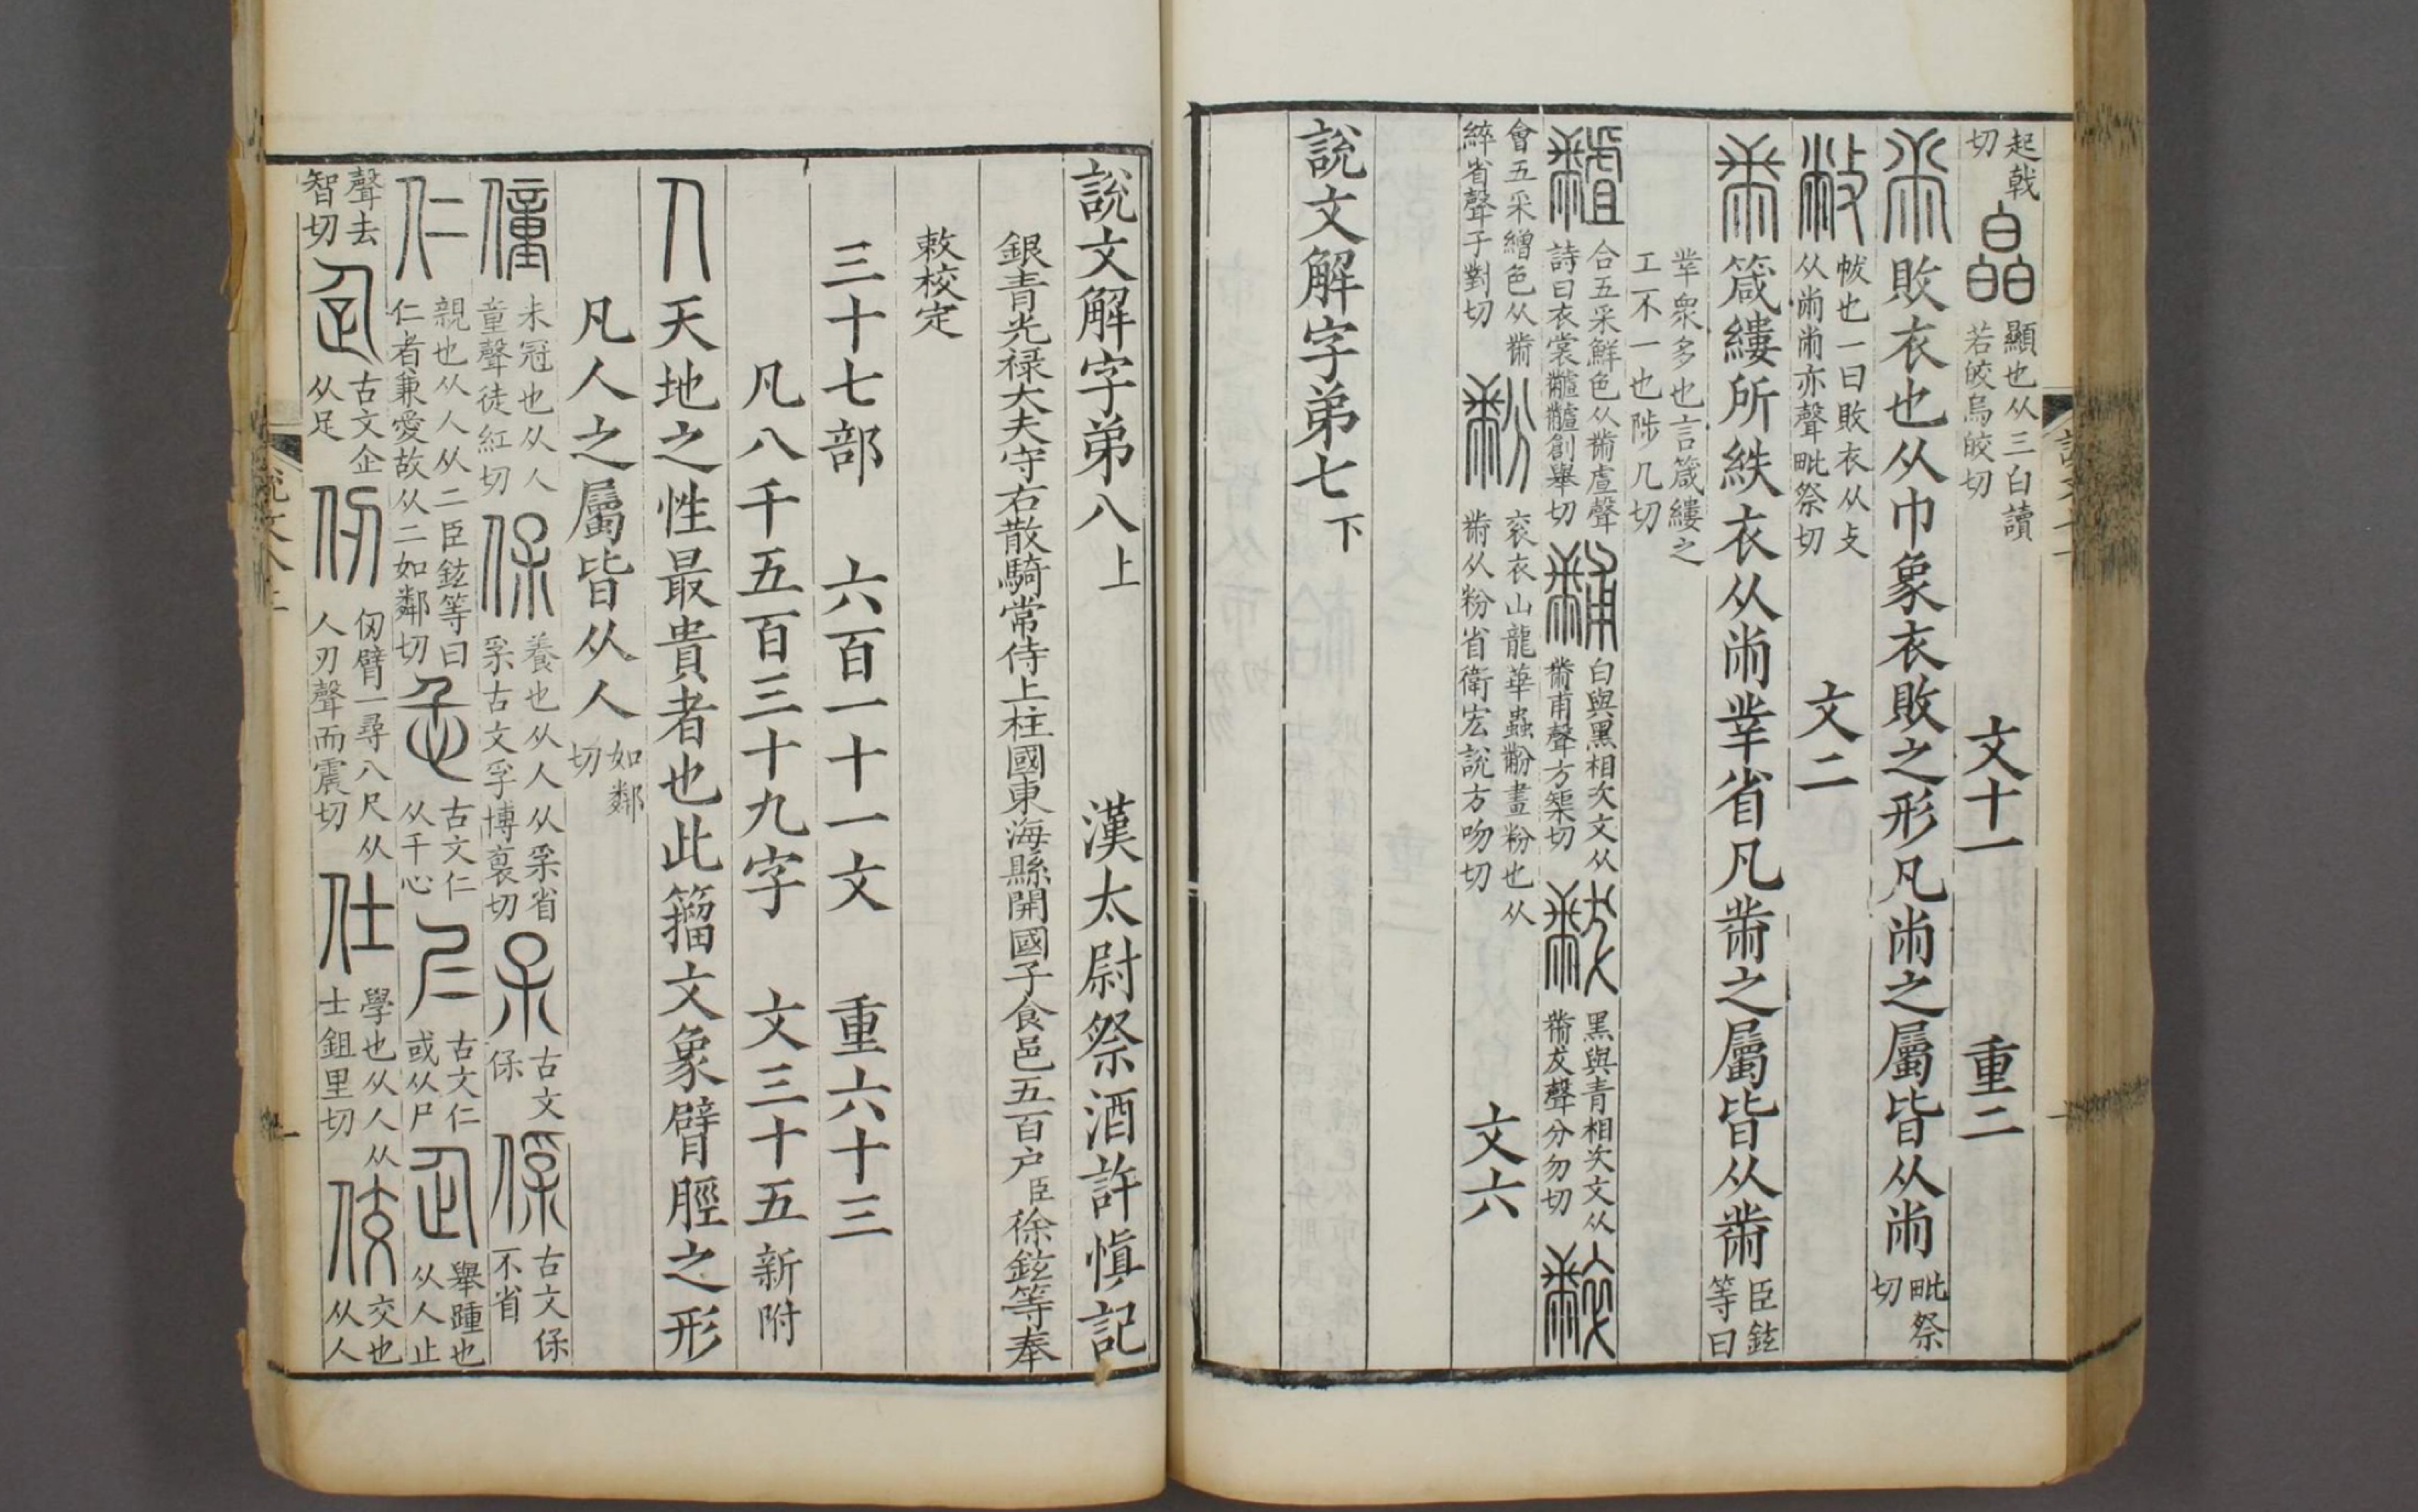 起戟切 皛 顯也从三白讀若皎烏皎切 文十一 重二
㡀 敗衣也从巾象衣敗之形凡㡀之屬皆从㡀 毗祭切
敝 帗也一曰敗衣从攴从㡀㡀亦聲毗祭切 文二
黹 箴縷所紩衣从㡀丵省凡黹之屬皆从黹 臣鉉等曰
丵衆多也言箴縷之工不一也陟几切
𪓐 合五采鮮色从黹虘聲詩曰衣裳𪓐𪓐創舉切 黼 白與黑相次文从黹甫聲方榘切 黻 黑與青相次文从黹犮聲分勿切 𪓌
會五采繒色从黹綷省聲子對切 黺 衮衣山龍華蟲黺畫粉也从黹从粉省衛宏說方吻切 文六
說文解字弟七下
說文解字弟八上 漢太尉祭酒許愼記
銀青光祿大夫守右散騎常侍上柱國東海縣開國子食邑五百户臣徐鉉等奉
敕校定
三十七部 六百一十一文 重六十三
凡八千五百三十九字 文三十五新附
人 天地之性最貴者也此籒文象臂脛之形
凡人之屬皆从人 如鄰切
僮 未冠也从人童聲徒紅切 保 養也从人从𤓽省𤓽古文孚博裒切 𤓽 古文保 𠊻 古文保不省
仁 親也从人从二臣鉉等曰仁者兼愛故从二如鄰切 忎 古文仁从千心 𡰥 古文仁或从尸 企 舉踵也从人止
聲去智切 𠈮 古文企从足 仞 伸臂一尋八尺从人刃聲而震切 仕 學也从人从士鉏里切 佼 交也从人